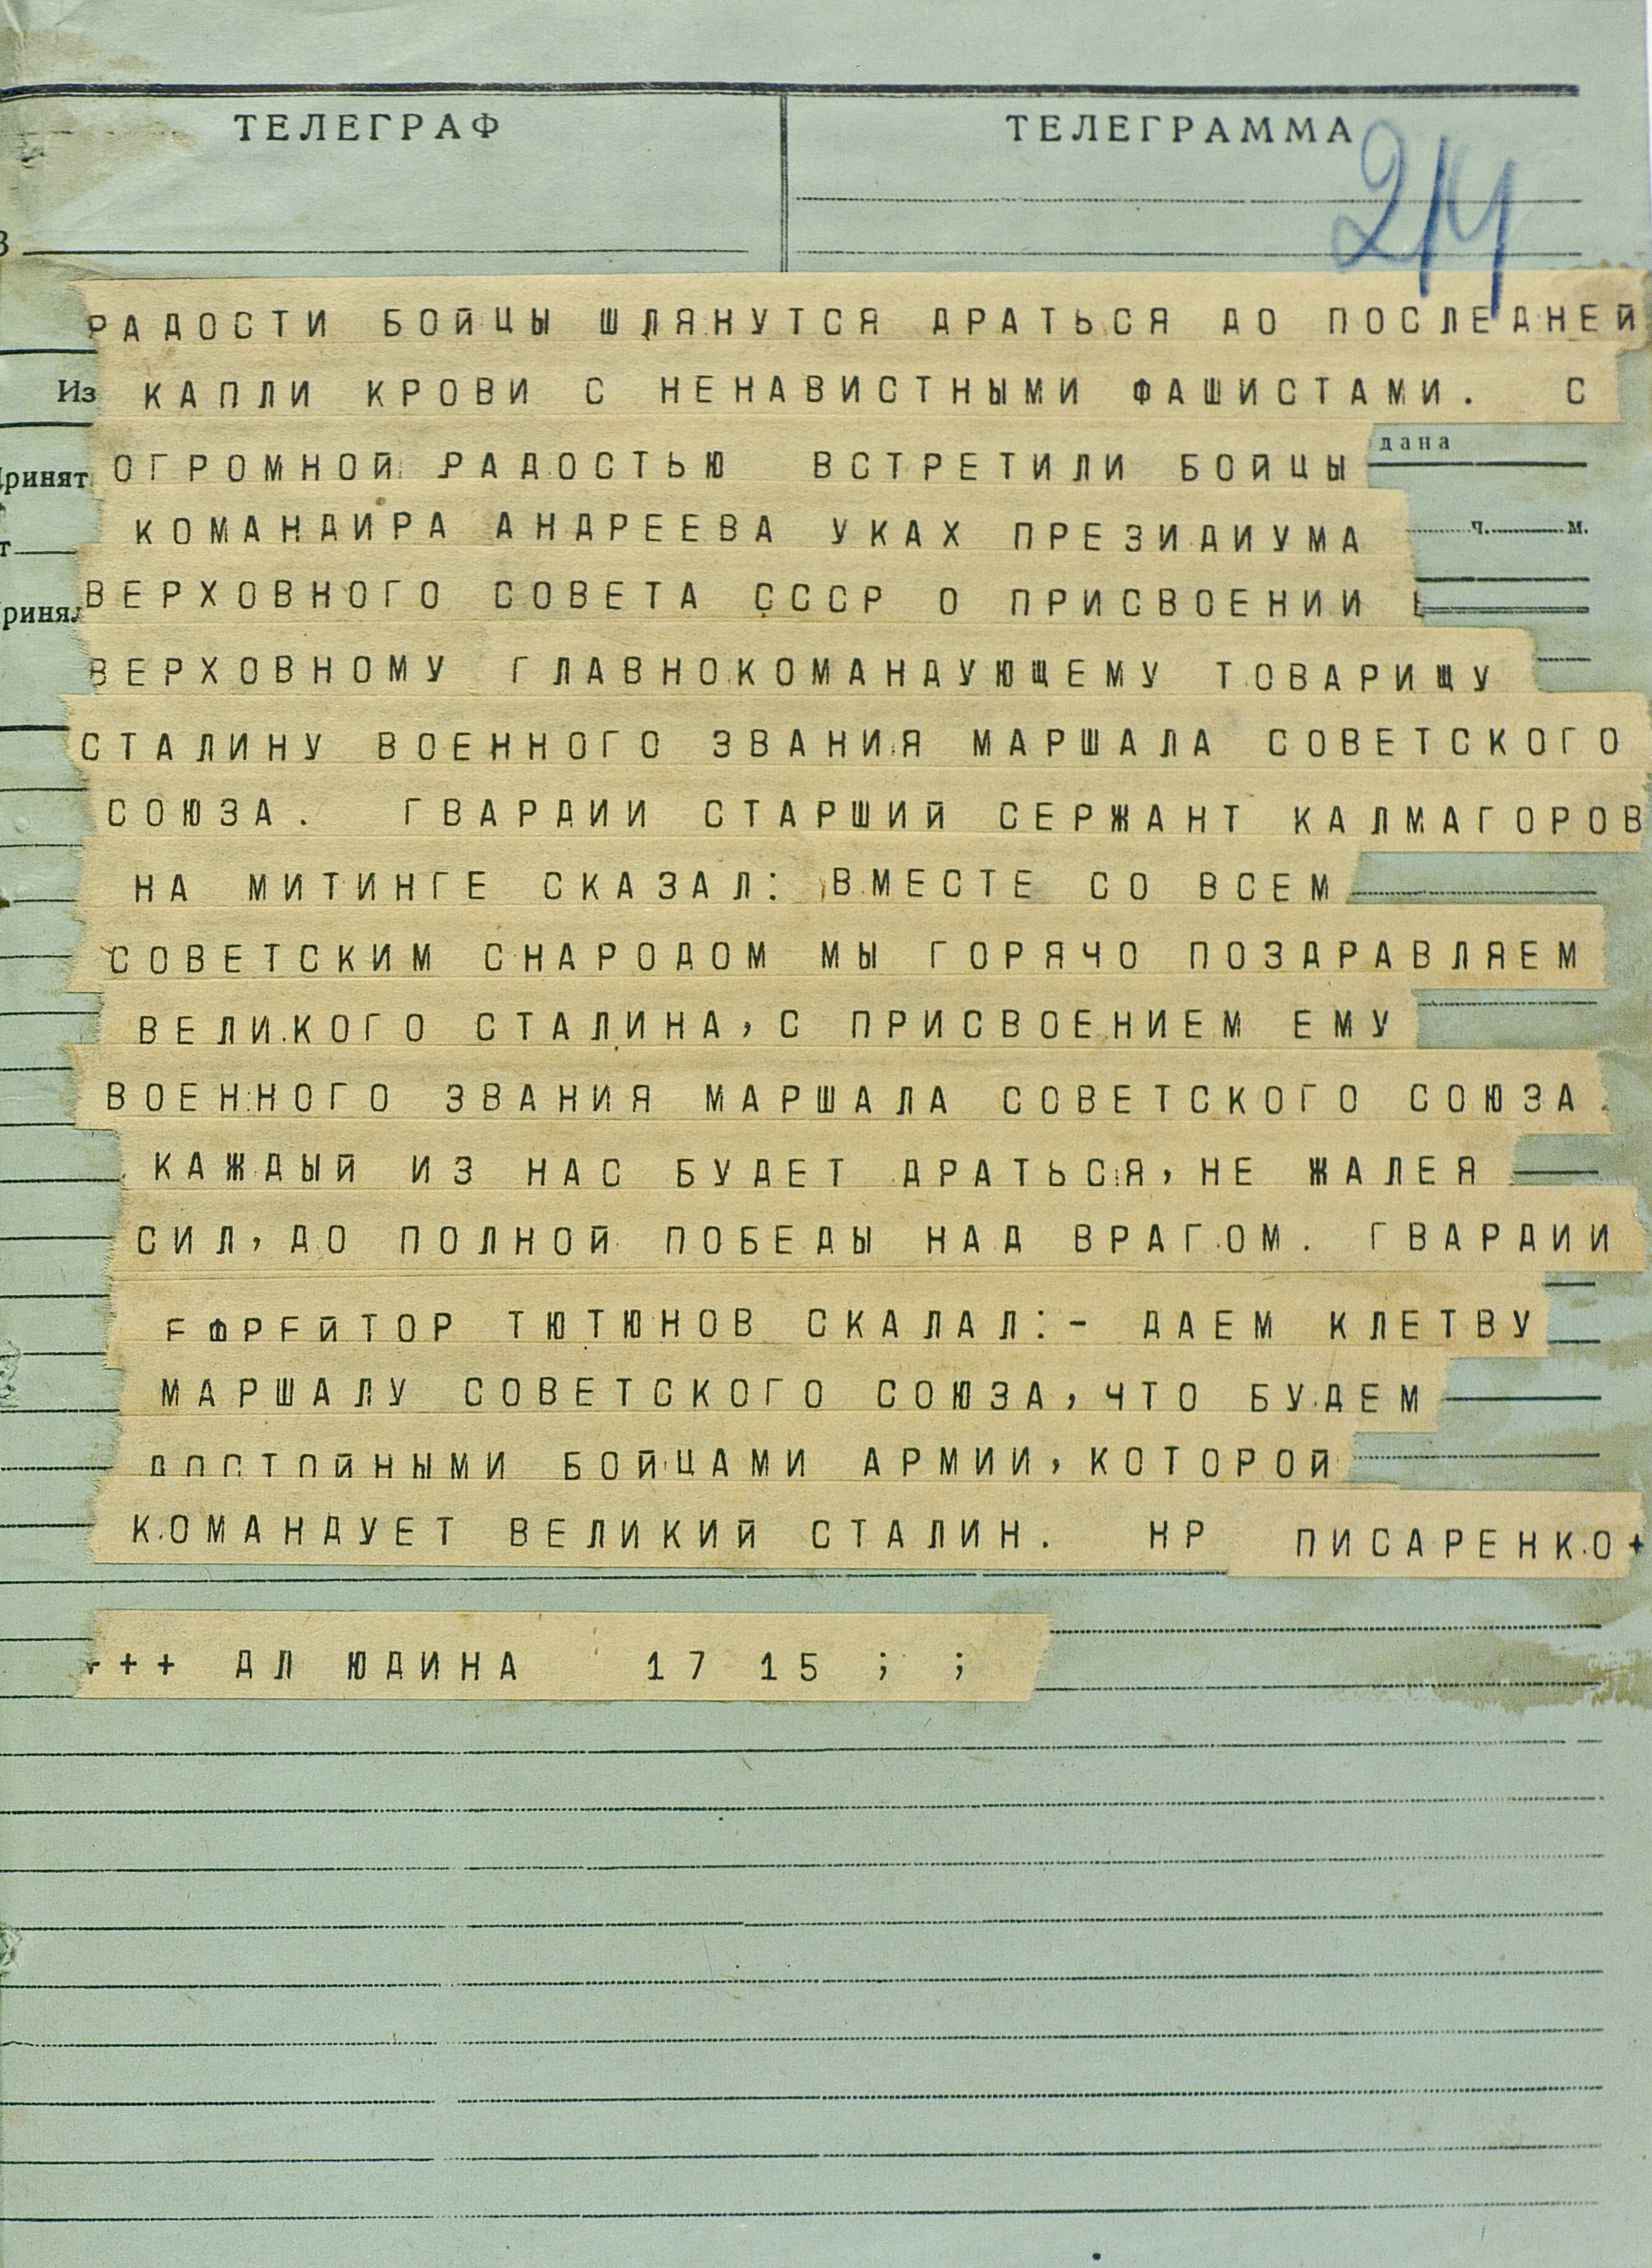 ТЕЛЕГРАФ ТЕЛЕГРАММА
24
В
РАДОСТИ БОЙЦЫ ШЛЯНУТСЯ ДРАТЬСЯ ДО ПОСЛЕДНЕЙ
Из КАПЛИ КРОВИ С НЕНАВИСТНЫМИ ФАШИСТАМИ. С
дана
ОГРОМНОЙ РАДОСТЬЮ ВСТРЕТИЛИ БОЙЦЫ
КОМАНДИРА АНДРЕЕВА УКАХ ПРЕЗИДИУМА
ч. м.
ВЕРХОВНОГО СОВЕТА СССР О ПРИСВОЕНИИ
ВЕРХОВНОМУ ГЛАВНОКОМАНДУЮЩЕМУ ТОВАРИЩУ
СТАЛИНУ ВОЕННОГО ЗВАНИЯ МАРШАЛА СОВЕТСКОГО
СОЮЗА. ГВАРДИИ СТАРШИЙ СЕРЖАНТ КАЛМАГОРОВ
НА МИТИНГЕ СКАЗАЛ: ВМЕСТЕ СО ВСЕМ
СОВЕТСКИМ СНАРОДОМ МЫ ГОРЯЧО ПОЗДРАВЛЯЕМ
ВЕЛИКОГО СТАЛИНА, С ПРИСВОЕНИЕМ ЕМУ
ВОЕННОГО ЗВАНИЯ МАРШАЛА СОВЕТСКОГО СОЮЗА.
КАЖДЫЙ ИЗ НАС БУДЕТ ДРАТЬСЯ, НЕ ЖАЛЕЯ
СИЛ, ДО ПОЛНОЙ ПОБЕДЫ НАД ВРАГОМ. ГВАРДИИ
ЕФРЕЙТОР ТЮТЮНОВ СКАЛАЛ:- ДАЕМ КЛЕТВУ
МАРШАЛУ СОВЕТСКОГО СОЮЗА, ЧТО БУДЕМ
ДОСТОЙНЫМИ БОЙЦАМИ АРМИИ, КОТОРОЙ
КОМАНДУЕТ ВЕЛИКИЙ СТАЛИН. НР ПИСАРЕНКО+
+++ ДЛ ЮДИНА 17 15 ; ;